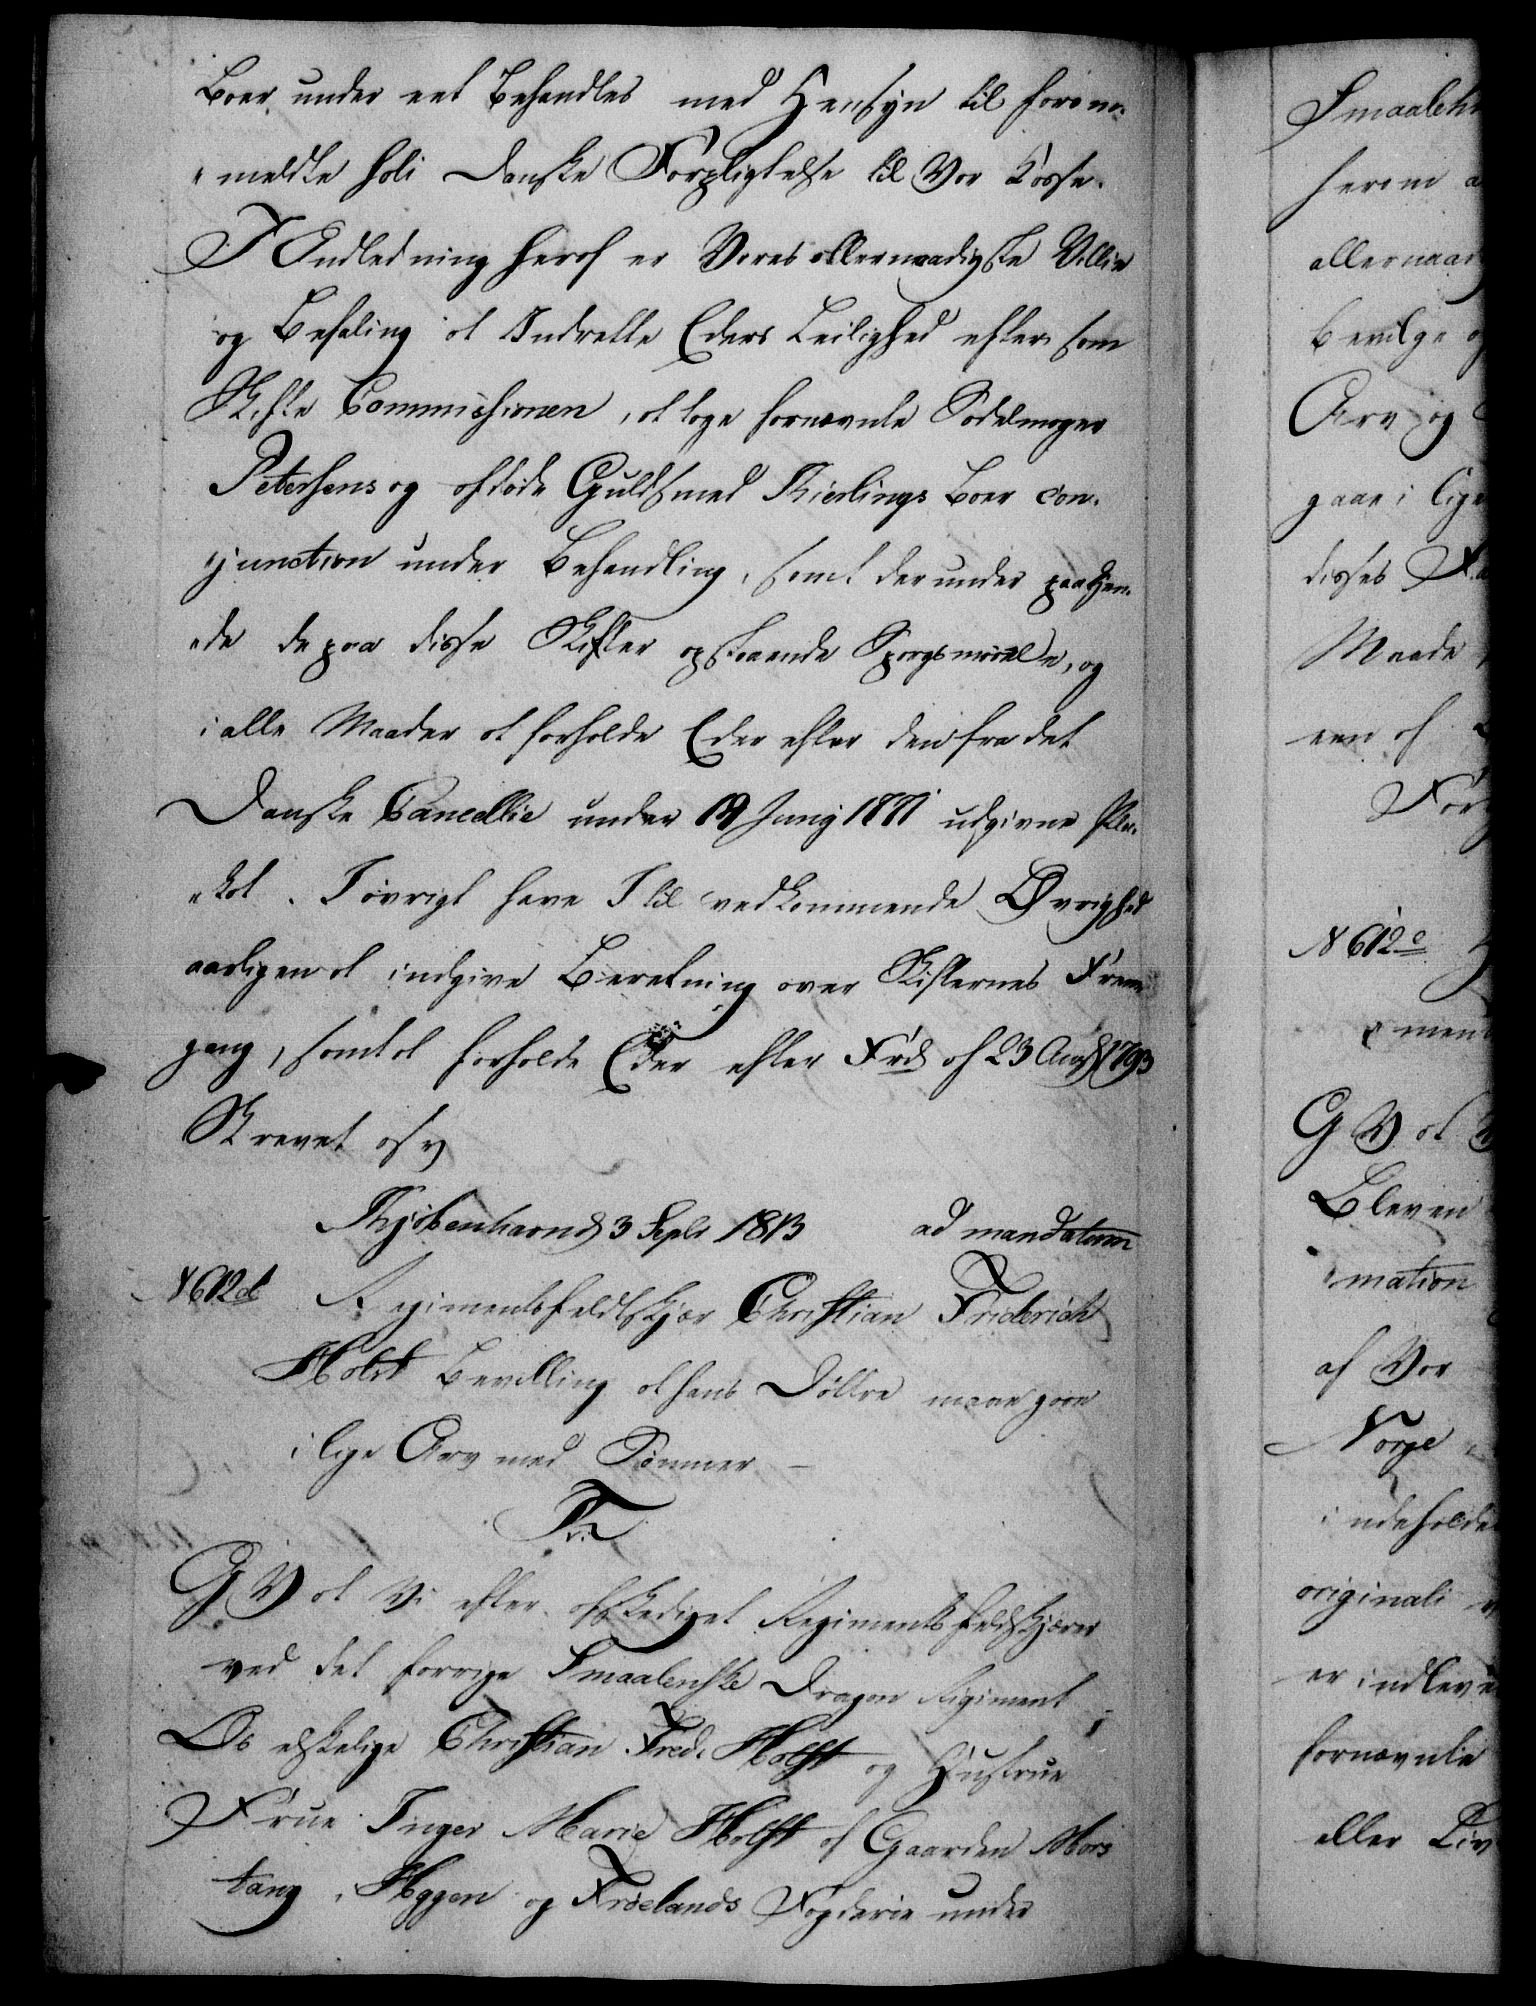 Boer under eet Behandles med Hensyn til foran-
"meldte Soli danske Forpligtelse til Vor Casse.
I Andledning heraf er Vores allernaadigste Villie
og Befaling at Indrette Eders Leilighed efter som
Skifte Commissionen, at tage fornævnte Sadelmager
Petersens og afdøde Guldsmed Kierlings Boer con-
"junction under Behandling, samt derunder paakjen-
"de de paa disse Skifter opstaaende Spørgsmaale, og
i alle Maader at forholde Eder efter den fra det
Danske Cancellie under Junij udgivne Pla-
"kat. I øvrigt have I til vedkommende Øvrighed
aarligen at indgive Beretning over Skifternes Frem-
gang, samt at forholde Eder efter Frd. af 23 Aug 1793
Skrevet osv
Kjøbenhavn d 3 Septr 1813 ad mandatum
N 612 d Regimentsfeldtskjær Christian Friderich
Holst Bevilling at hans Døttre maae gaae
i lige Arv med Sønner –
G V at Vi efter afskediget Regimentsfeldtskjærer
ved det forrige Smaalenske Dragon Regiment
Os elskelige Christian Fred. Holst og Hustrue
Frue Inger Marie Holst af Gaarden Mors
tang, Aggers og Frielands Fogderie under
Smaalehn
herom a
allernaad
bevilge og
Arv og
gaae i lige
disses
Maade
een af
N 612 e
"men
G V at
Bleven
"mation
af Vor
Norge
indeholde
originali
er indleve
fornævnte
eller Liv